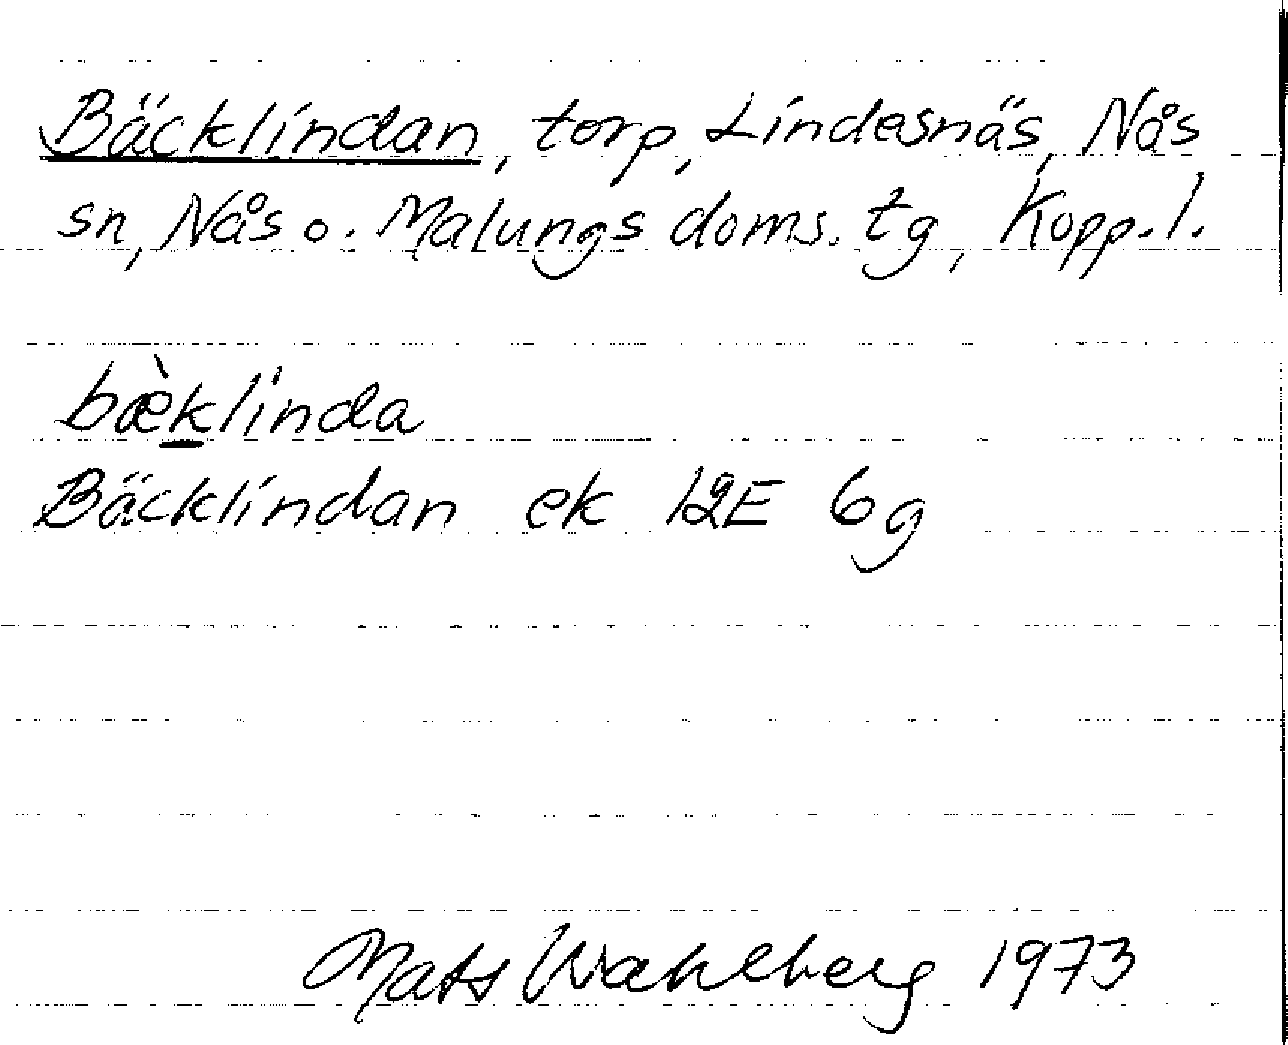 Bäcklindan, torp, Lindesnäs, Nås
sn, Nås o. Malungs doms. tg, Kopp. l.
bæ̀klinda
Bäcklindan ek 12E 6g
Mats Wahlberg 1973